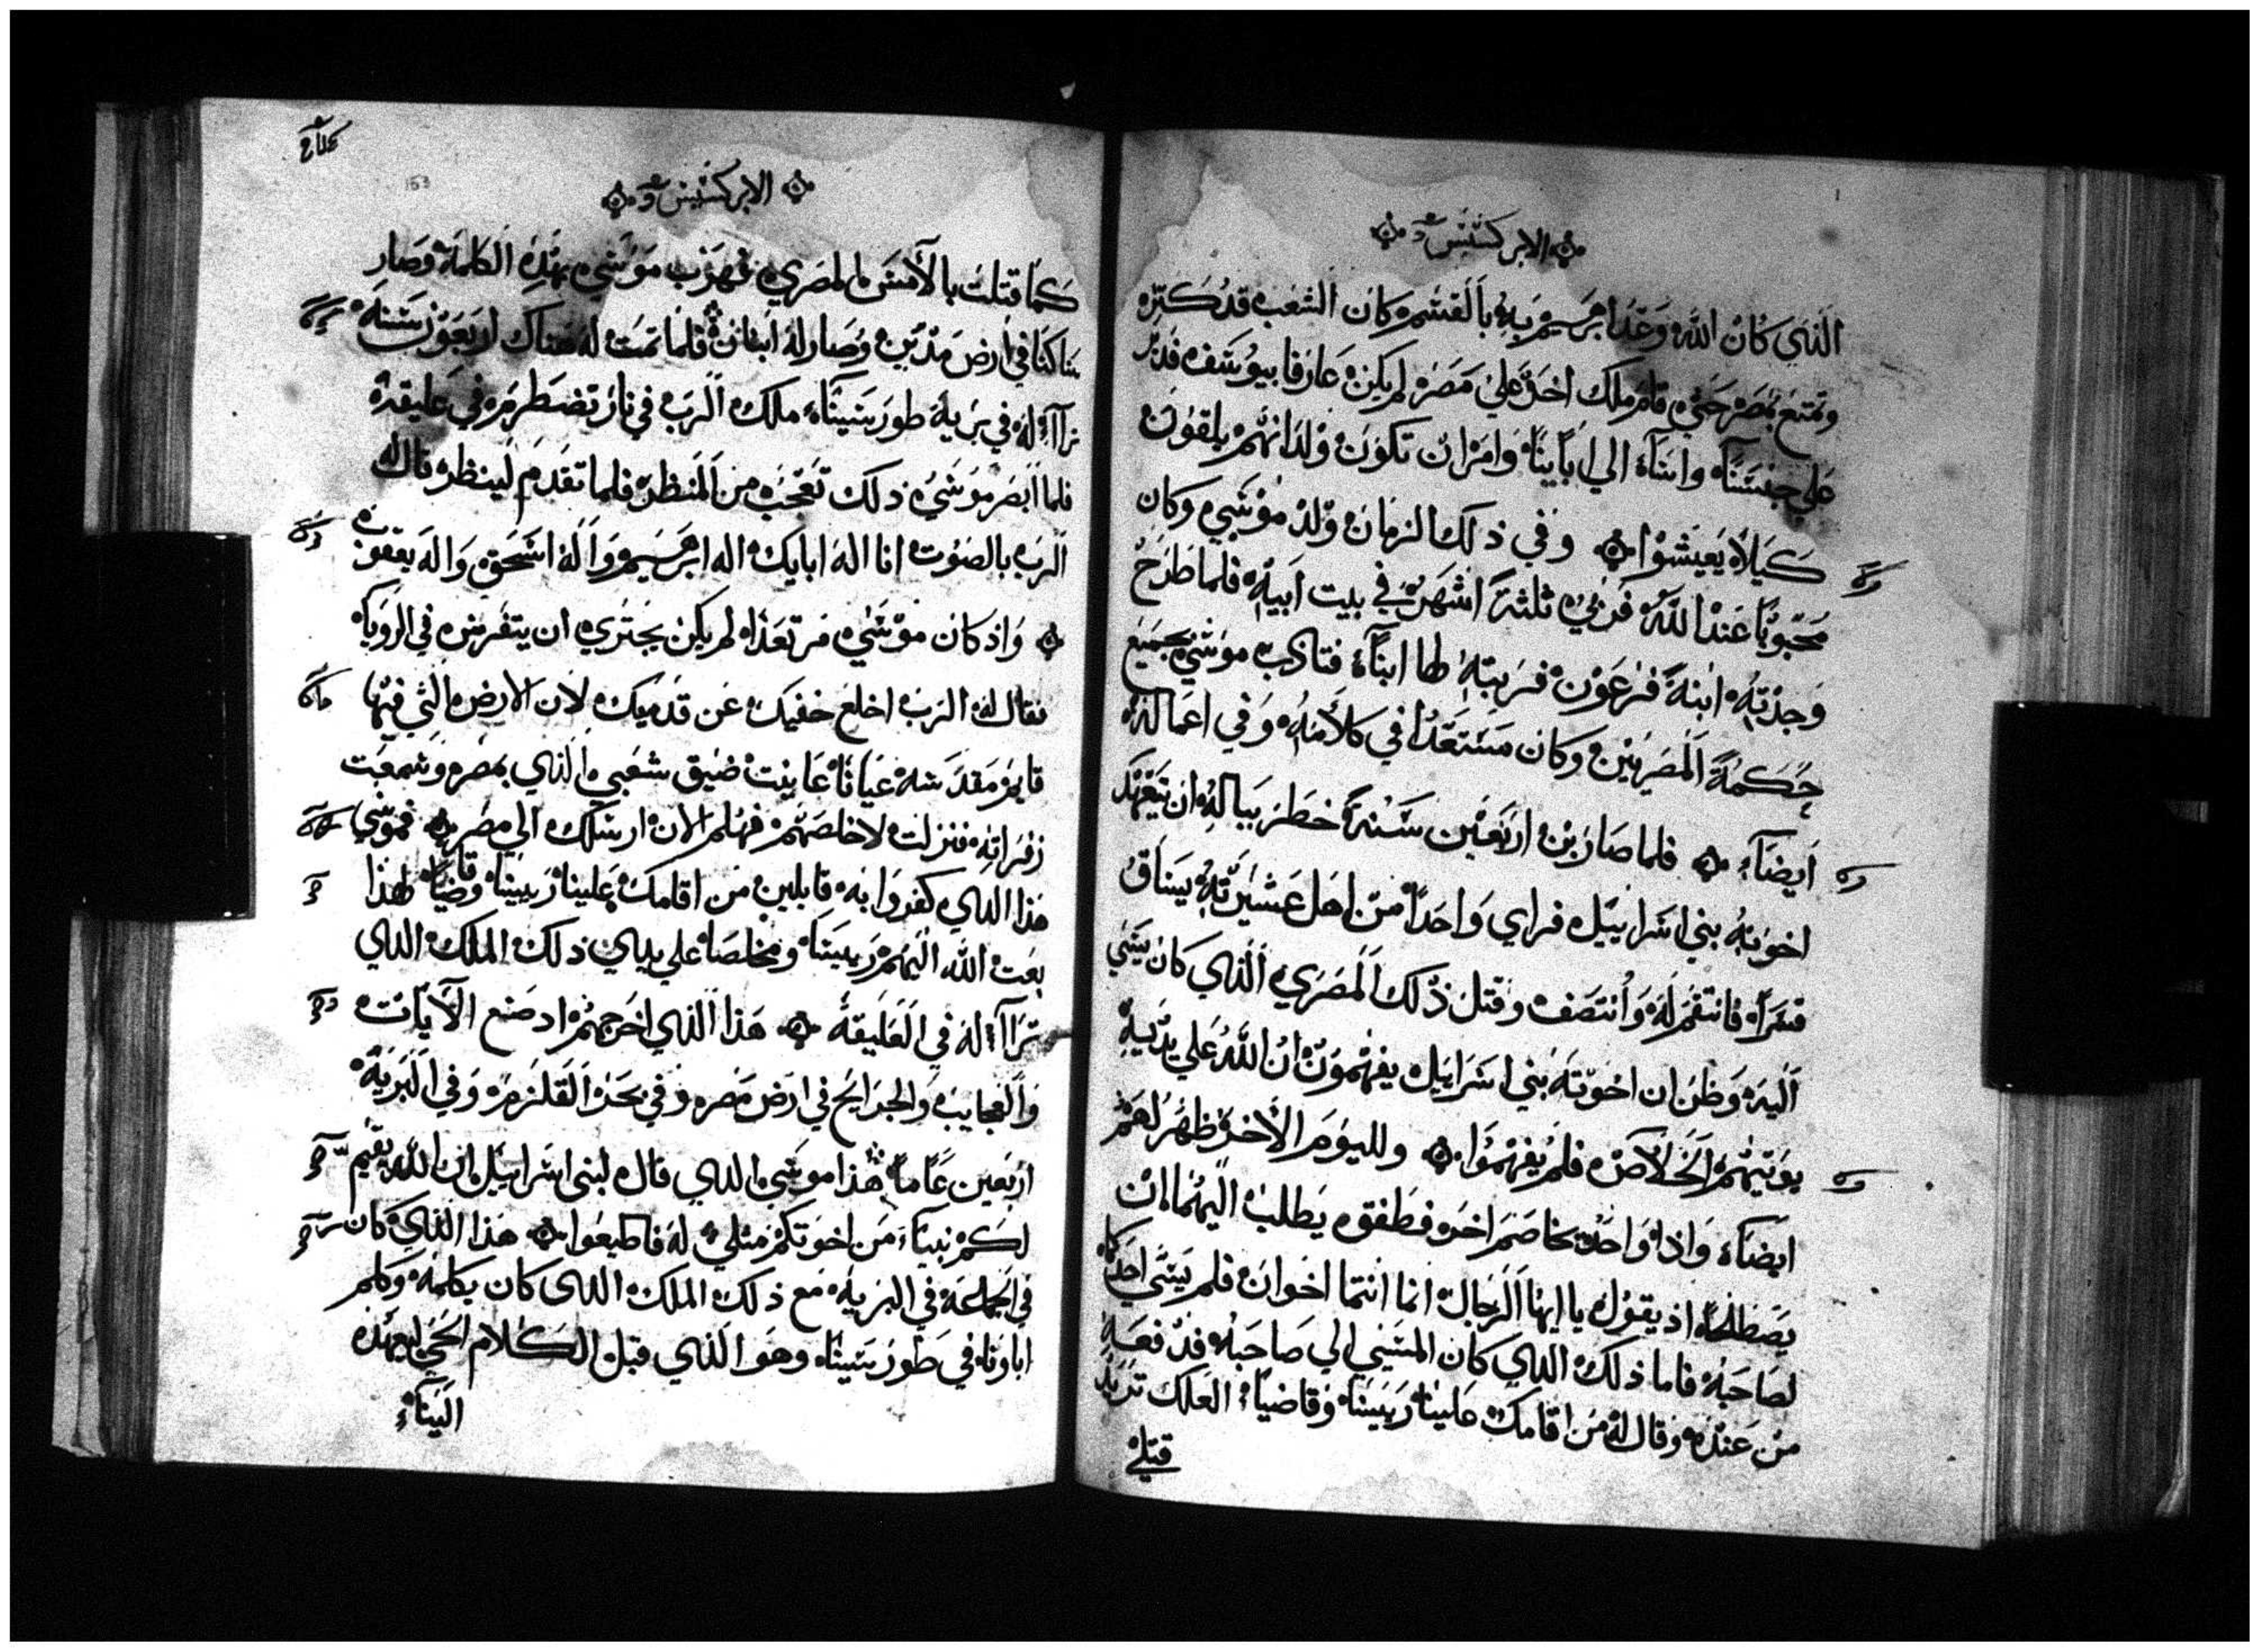 الابركسيس
الذي كان الله وعد ابرهيم به بالقسم كان الشعب قد كبر
ونمي بمصر حتي قام ملك اخر علي مصر لم يكن عارفا بيوسف فدبر
علي جنسنا واساء الي اباينا وامر ان تكون ولدانهم يلقون
كيلا يعيشوا وفي ذلك الزمان ولد موسي وكان
محبوبا عند الله فربي ثلثة اشهر في بيت ابيه فلما طرح
وجدته ابنة فرعون فربته لها ابناء فتادب موسي بجميع
حكمة المصريين وكان مستعدا في كلامه وفي اعماله
ايضاء فلما صار بن اربعين سنة خطر بباله ان يتعهد
اخوته بني اسراييل فراي واحدا من اهل عشيرته يساق
قسرا فانتقم له وانتصف وقتل ذلك المصري الذي كان يسي
اليه وظن ان اخوته بني اسراييل يفهمون ان الله علي يديه
يوتيهم الخلاص فلم يفهموا ولليوم الاخر ظهر لهم
ايضاء واذا واحد يخاصم اخر فطفق يطلب اليهما ان
يصطلحا اذ يقول يا ايها الرجال انما انتما اخوان فلم يسي احدكما
لصاحبه فاما ذلك الدي كان المسي الي صاحبه فدفعه
من عنده وقال له من اقامك علينا رييسا وقاضياء العلك تريد
قتلي
الابركسيس
153
كما قتلت بالامس المصري فهرب موسي بهذه الكلمة وصار
ساكنا في ارض مدين وصار له ابنان فلما تمت له هناك اربعون سنة
تراآء له في برية طور سيناء ملك الرب في نار تضطرم في عليقة
فلما ابصر موسي ذلك تعجب من المنظر فلما تقدم لينظر قال له
الرب بالصوت انا اله ابايك اله ابرهيم واله اسحق واله يعقوب
واذ كان موسي مرتعدا لم يكن يجتري ان يتفرس في الرويا
فقال له الرب اخلع خفيك عن قدميك لان الارض التي فيها
قايم مقدسه عيانا عاينت ضيق شعبي الذي بمصر وسمعت
زفراته فنزلت لاخلصهم فهلم الان ارسلك الي مصر فموسي
هذا الدي كفروا به قايلين من اقامك علينا رييسا وقاضيا لهذا
بعت الله اليهم رييسا ومخلصا علي يدي ذلك الملك الدي
تراآء له في العليقة هذا الذي اخرجهم اد صنع الايات
والعجايب والجرايح في ارض مصر وفي بحر القلزم وفي البرية
اربعين عاما هذا موسي الدي قال لبني اسراييل ان الله يقيم
لكم نبياء من اخوتكم مثلي له فاطيعوا هذا الذي كان
في الجماعة في البرية مع ذلك الملك الدي كان يكلمه وكلم
اباونا في طور سينا وهو الذي قبل الكلام الحي ليعهده
الينا